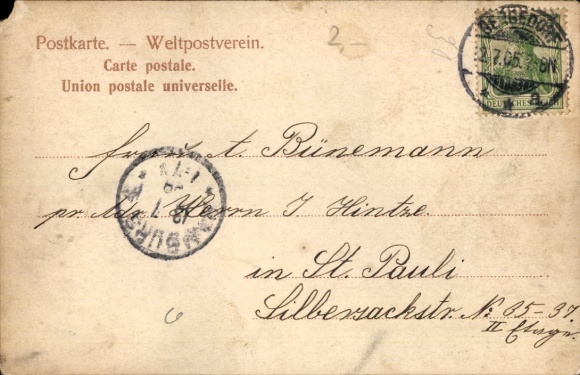 2,-
Postkarte. — Weltpostverein.
Carte postale.
Union postale universelle.
BERGEDORF
7.05.
DEUTSCHES REICH
Frau A. Bünemann
pr. Adr. Herrn J. Hintze
in St. Pauli
Silbersackstr. No. 35-37.
II Etage.
HAMBURG
6